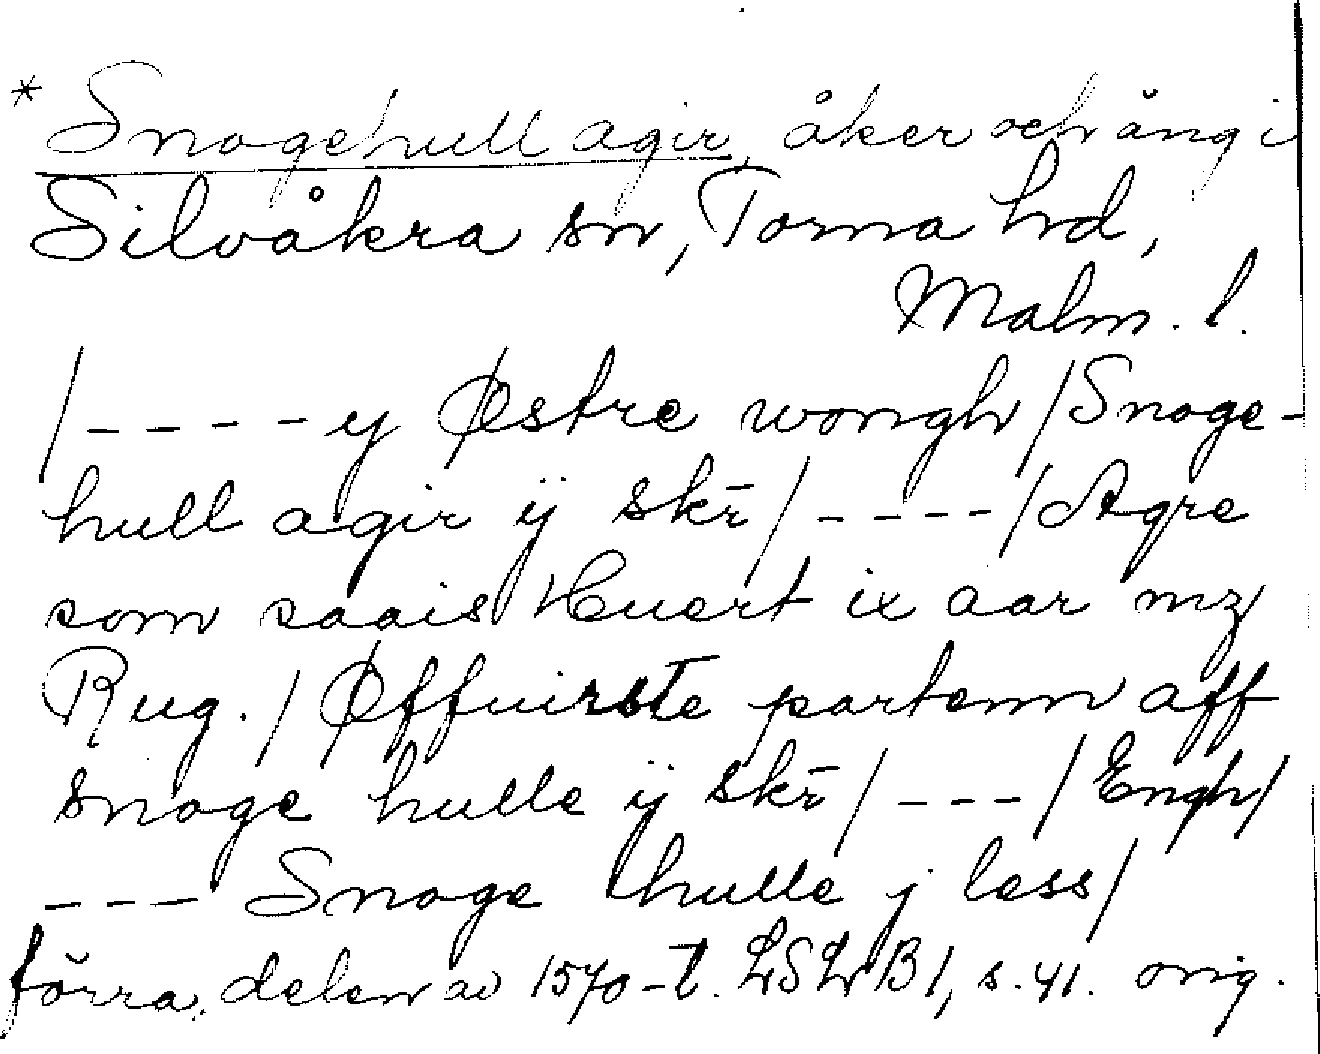 * Snogehull agir, åker och äng i
Silvåkra sn, Torna hd,
Malm. l.
/ - - - - y Østre wongh / Snoge-
hull agir ij skr̄ / - - - - / Agre
som saais Huert ix aar mz
Rug. / Øffuirste partenn aff
snoge hulle ij skr̄ / - - - / Engh /
- - - Snoge hulle j less /
förra delen av 1570-t. LSLB 1, s. 41. orig.